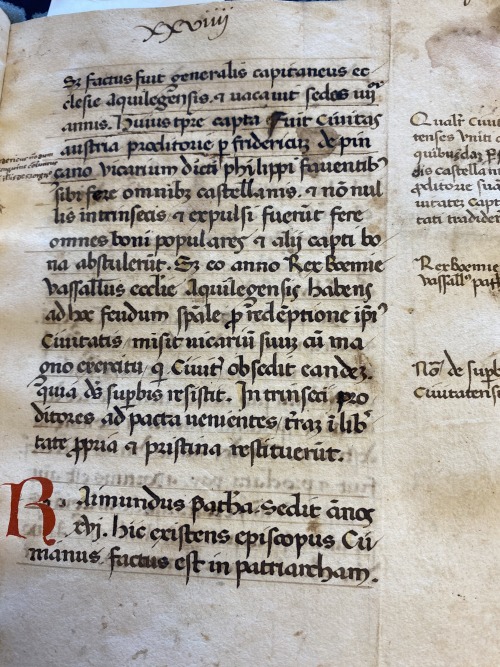 xxviiij
Et factus fuit generalis capitaneus ec
clesie aquilegensis. et vacauit sedes iiij
annis. Huius tpre capta fuit Ciuitas
austria proditorie p fridericū de pin
cano vicarium dicti philippi fauentib
sibi fere omnibz castellanis. et nō nul
lis intrinsecis. et expulsi fuerūt fere
omnes boni populares et alij capti bo
na abstulerūt. Et eo anno Rex boemie
vassallus ecclie Aquilegensis habens
ad hoc feudum spāle p redēptione ipi
Ciuitatis misit vicariū suū cū ma
gno exercitu q Ciuit obsedit eandez.
quia ds suꝑbis resistit. Intrinseci pro
ditores ad pacta uenientes traz ī lib
tate ꝓpria et pristina restituerūt.
Raimundus Patha. Sedit ānos
xvj. hic existens episcopus Cu
manus factus est in patriarcham.
Qualr Ciuit
tenses Vniti
quibusdaz
dis castellan
ꝓditorie sua
uitatez capt
tati tradider
Rex boemie
vassall
Nō de suꝑb
Ciuitatens